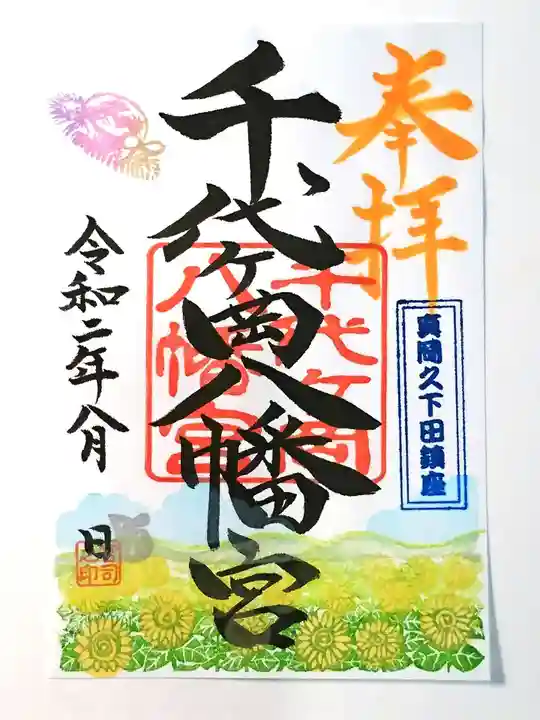 奉拝
真岡久下田鎮座
千代ヶ岡八幡宮
千代ヶ岡
八幡宮
令和二年八月
日